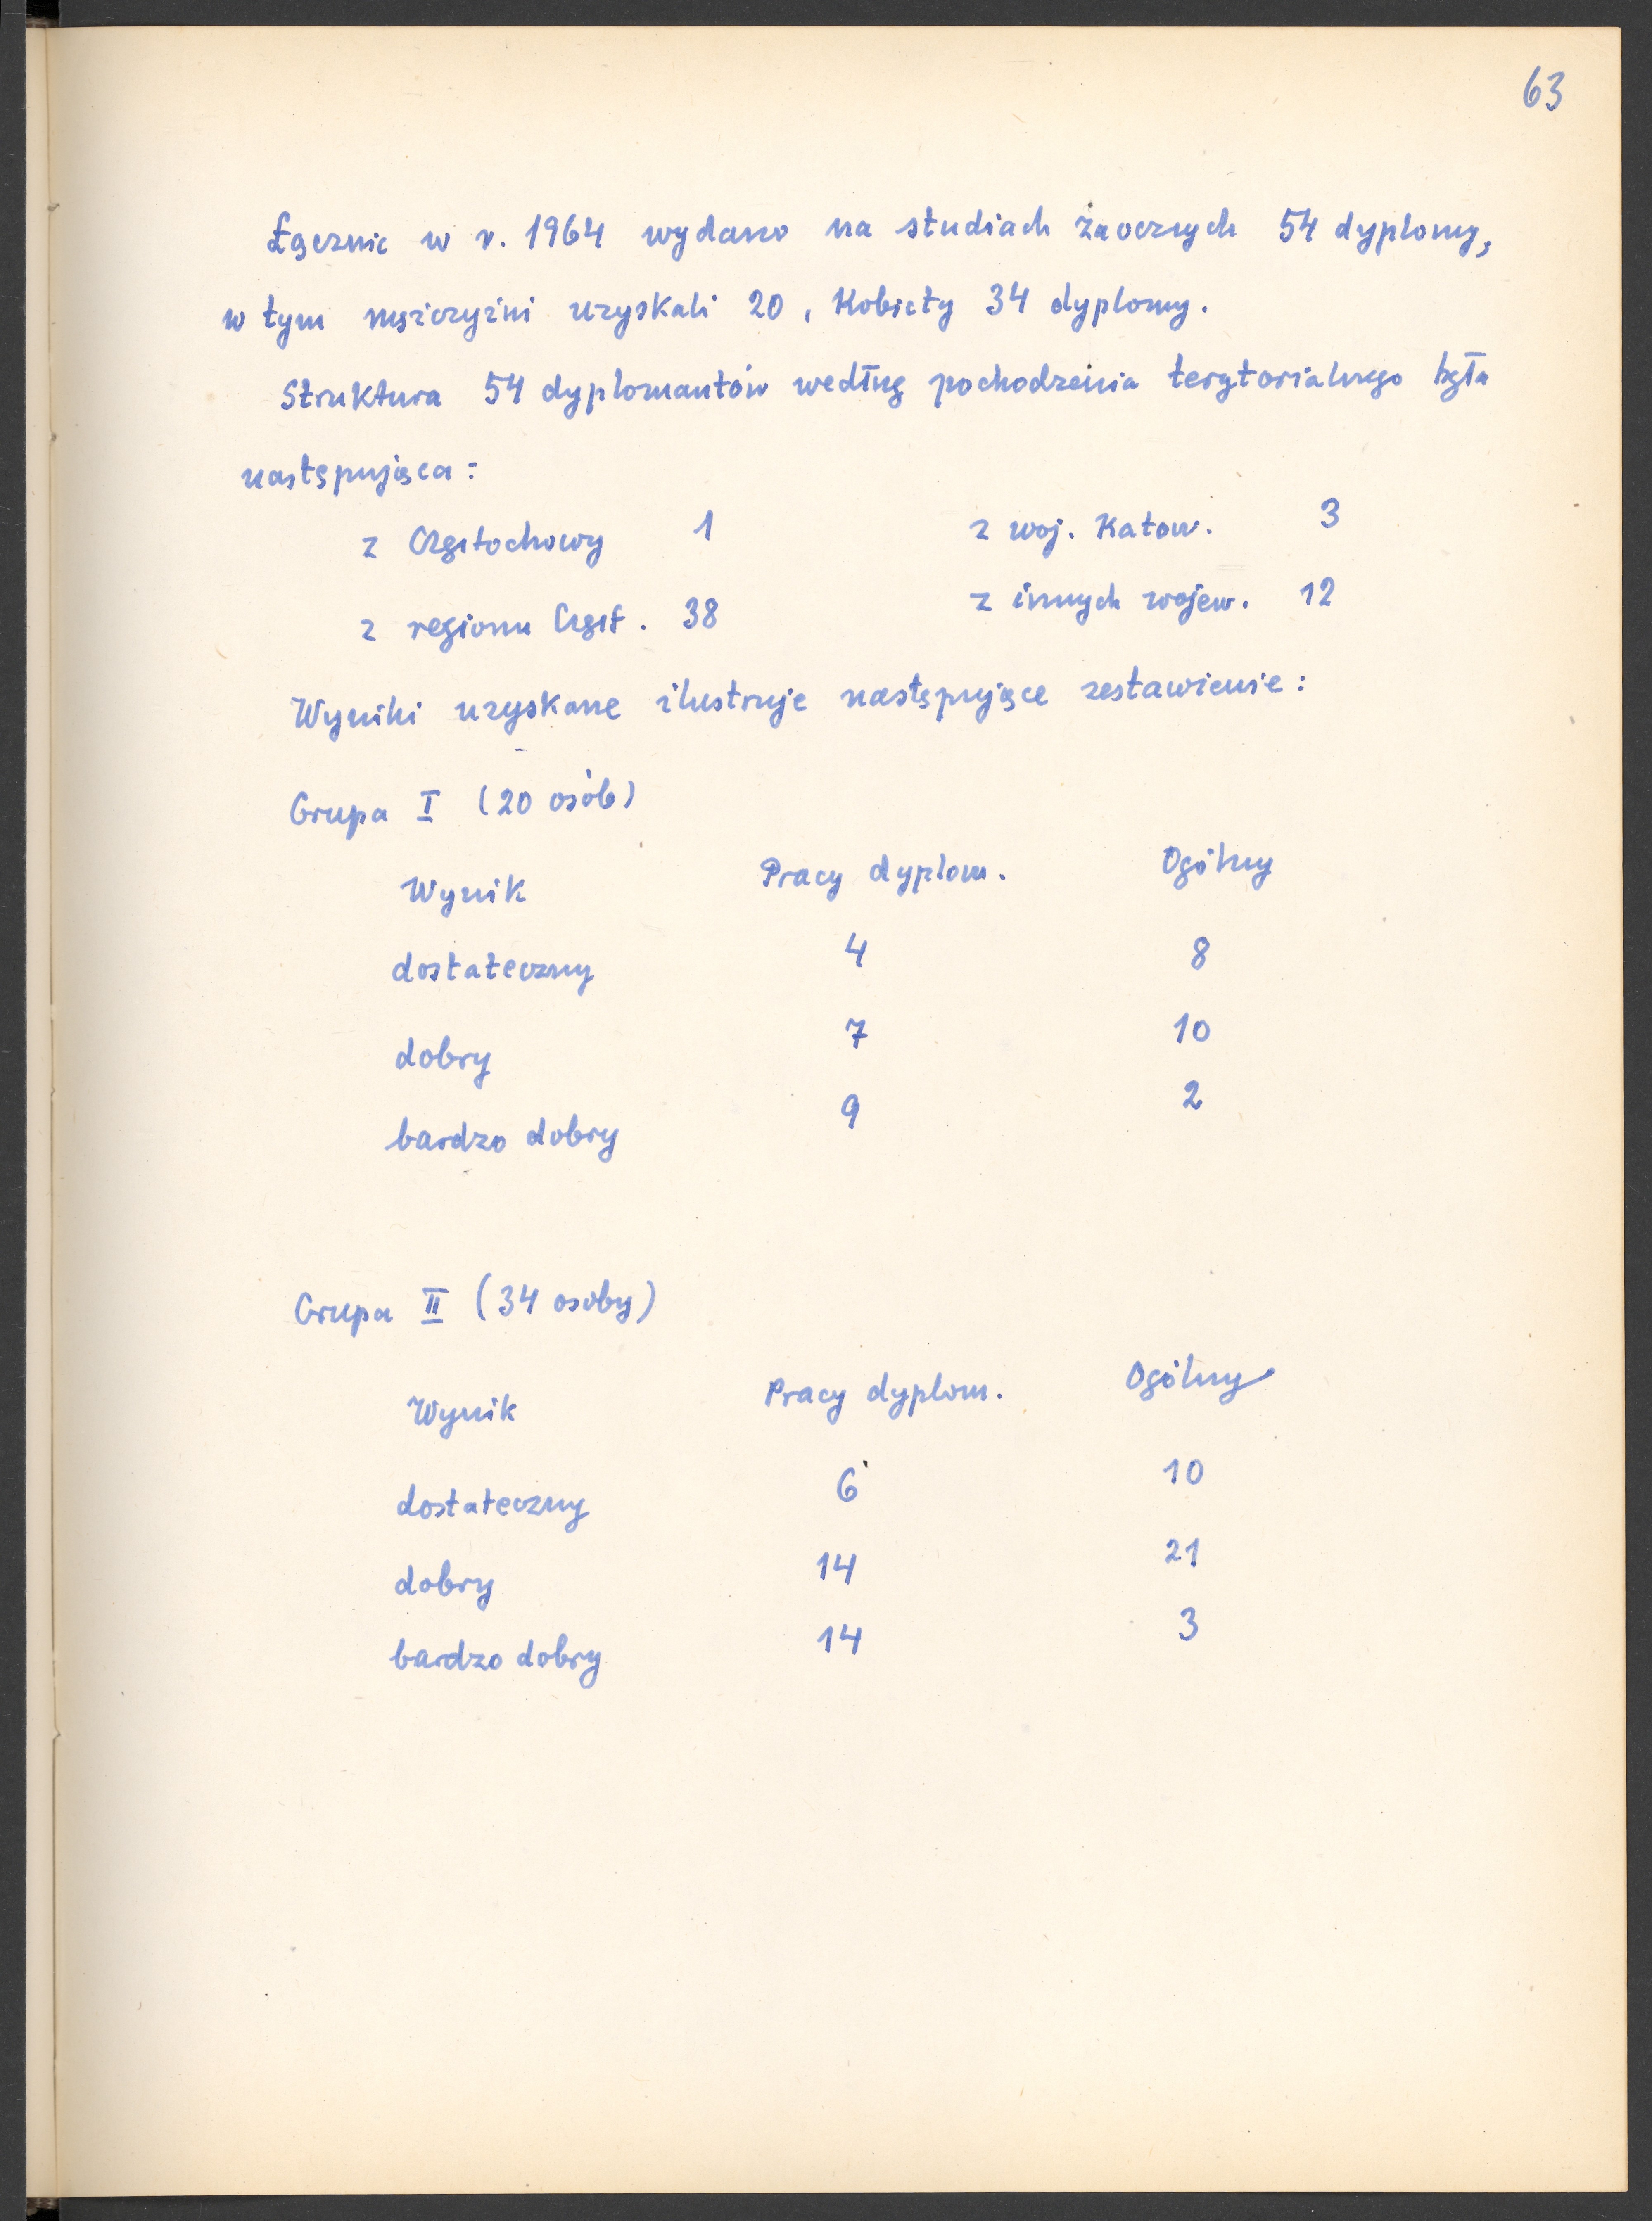 63
Łącznie w r. 1964 wydano na studiach zaocznych 54 dyplomy,
w tym mężczyźni uzyskali 20, Kobiety 34 dyplomy.
Struktura 54 dyplomantów według pochodzenia terytorialnego była
następująca:
z Częstochowy 1 z woj. Katow. 3
z regionu Częst. 38 z innych wojew. 12
Wyniki uzyskane ilustruje następujące zestawienie:
Grupa I (20 osób)
Wynik Pracy dyplom. Ogólny
dostateczny 4 8
dobry 7 10
bardzo dobry 9 2
Grupa II (34 osoby)
Wynik Pracy dyplom. Ogólny
dostateczny 6 10
dobry 14 21
bardzo dobry 14 3